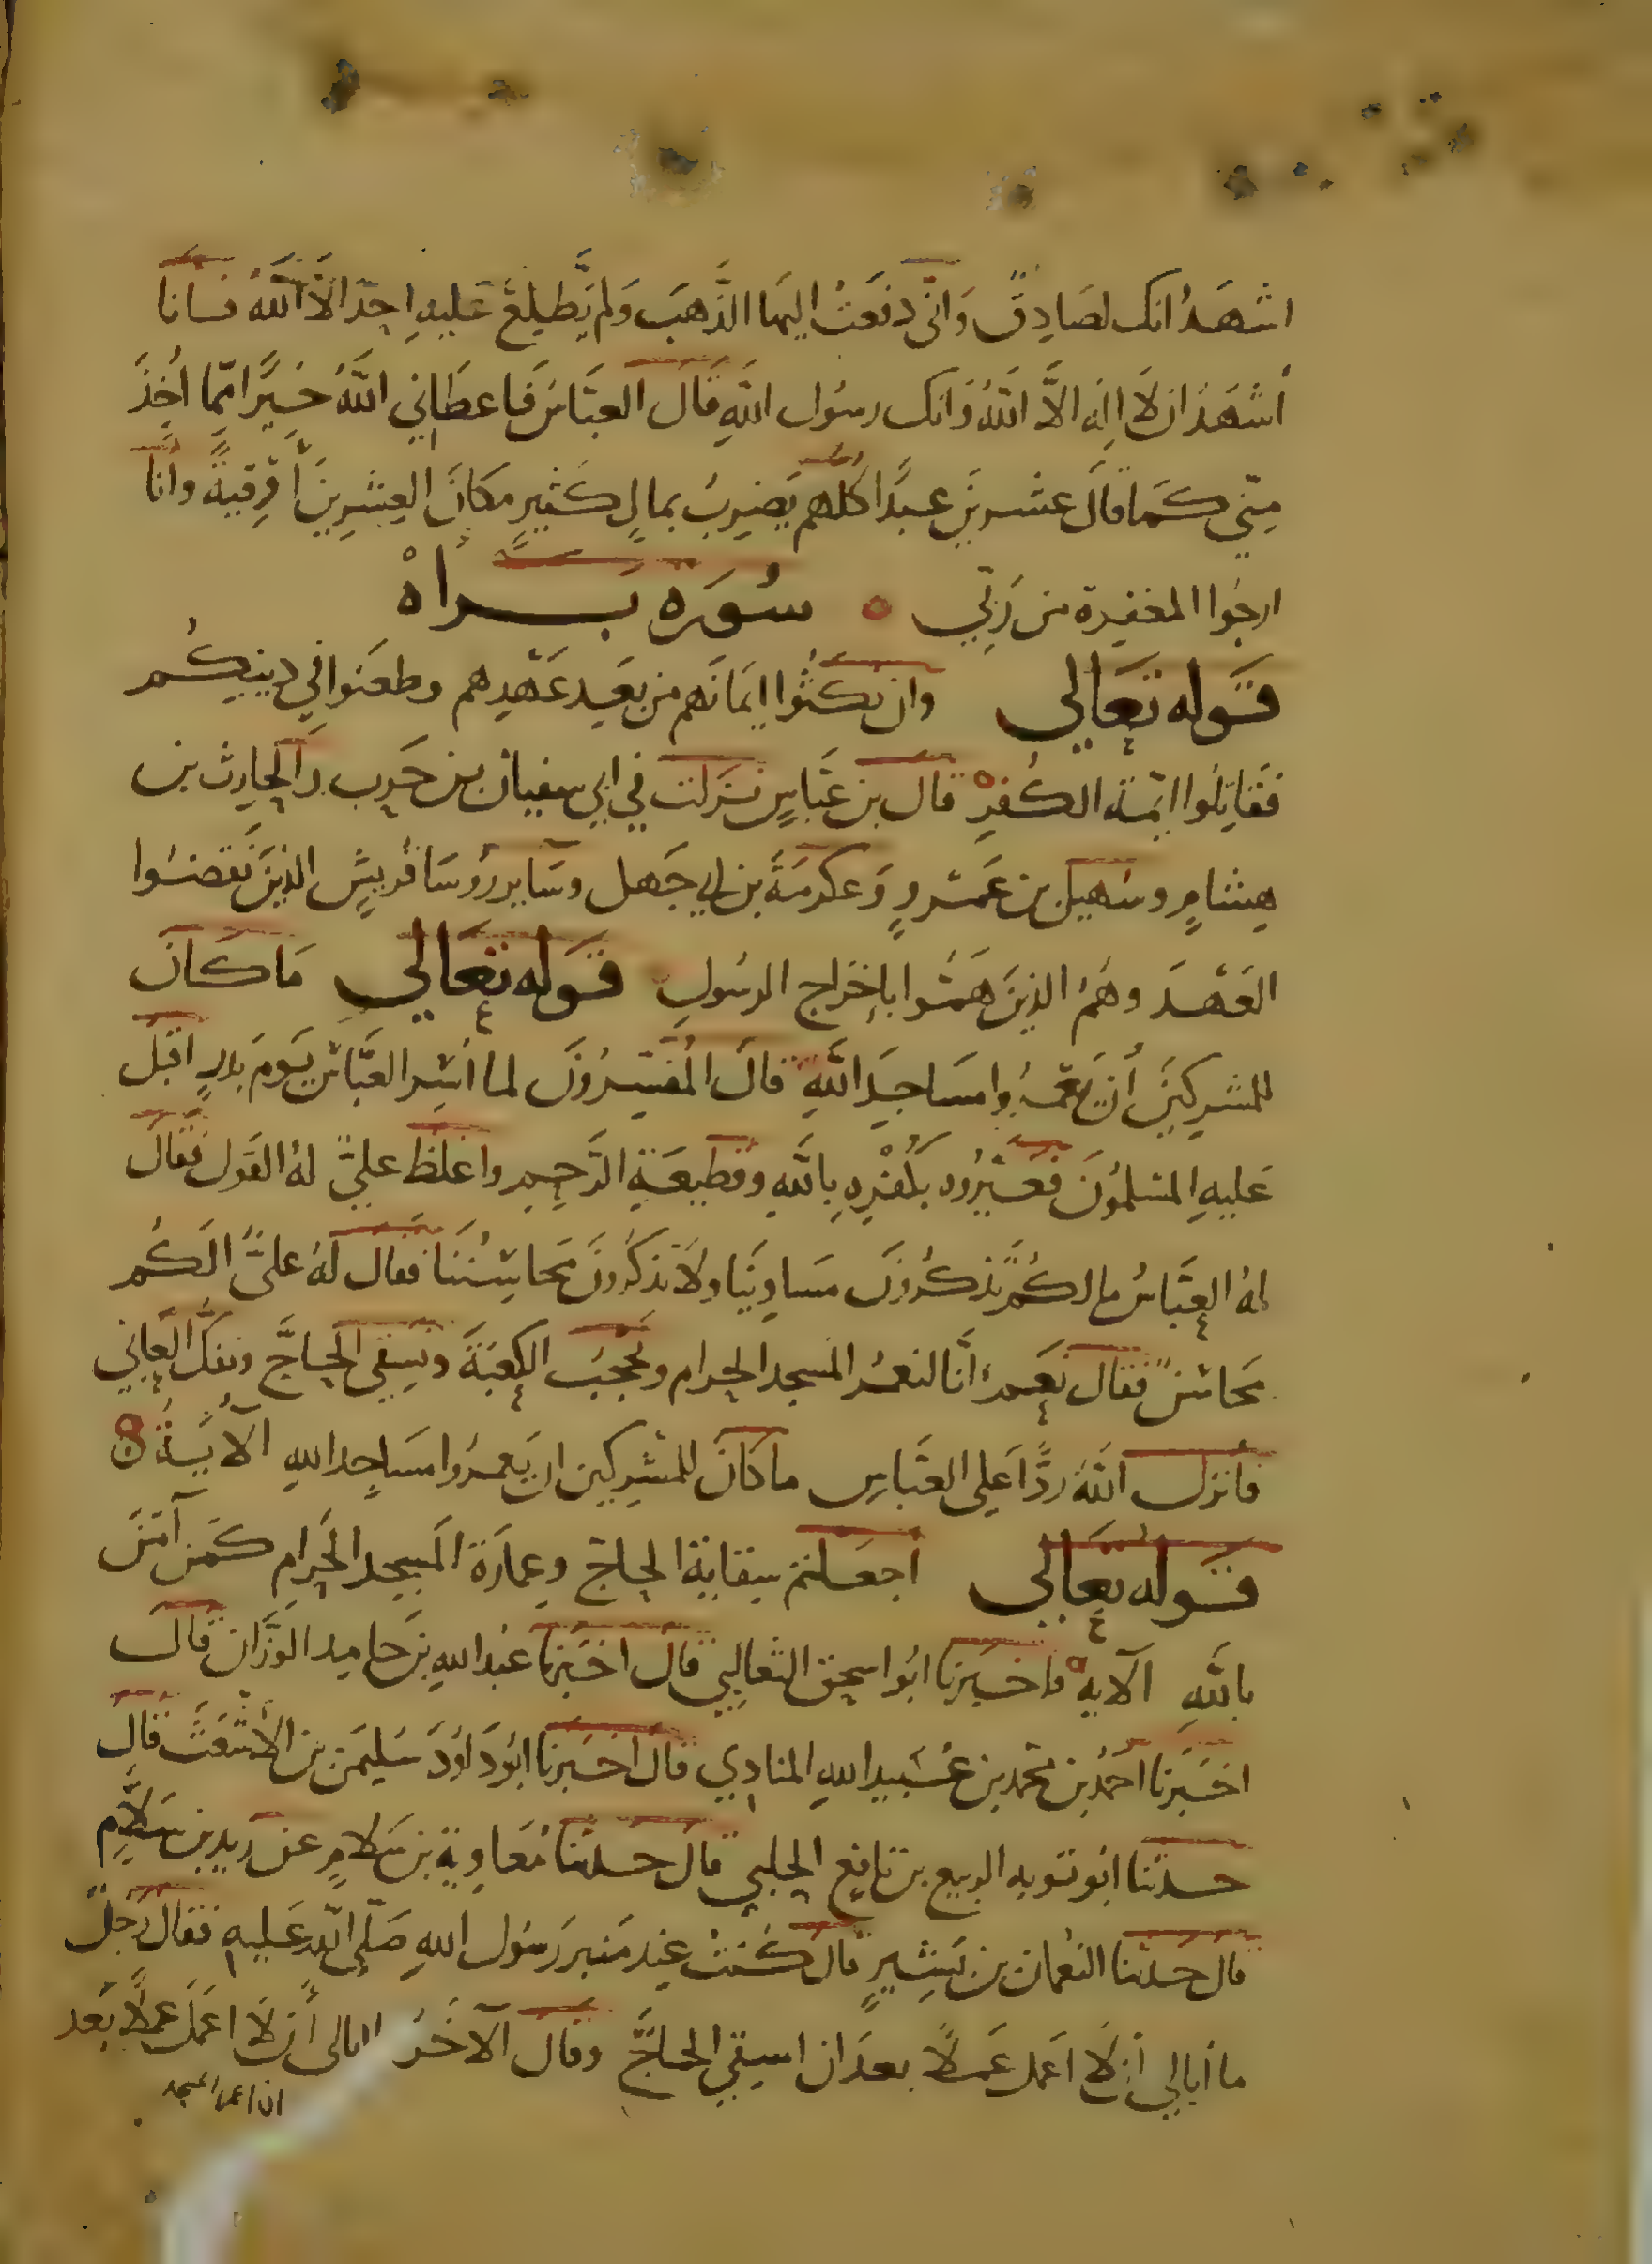 اشهَدُ انك لصَادِقٌ وَانّى دفَعتُ اليهَا الذَّهبَ وَلم يَطلِع عَليهِ احِدٌ الاَّ اللَّه فَانا
أشهَدُ ان لاَ الِهَ الاَّ اللهُ وَانك رسُول اللهِ قَالَ العبَّاسُ فَاعطَانِي اللَّهُ خَيرًا مِّمَا اُخِذَ
مِنّي كَمَا قالَ عشرينَ عبدًا كلهُم يَضرِبُ بمالٍ كَثيرٍ مَكانَ العِشرِينَ أُوقِيةً وأنَا
ارجُوا المغفِرة من رَبّي ه سُورَه بَراه
قَوله تعَالي وان نكثُوا ايمَانهم من بَعدِ عَهدِهم وطعَنوا في دِينِكُم
فقَاتِلُوا ايمَّة الكُفرِ ه قال بن عَبَّاسٍ نَزلت في ابي سفيان بن حَرب وَالحارِث بن
هِشامٍ وسُهَيل بن عَمرٍو وَعكرمَةَ بن ابي جَهل وسَاير روُسَا قُريشٍ الذينَ نَقضُوا
العَهدَ وهُمُ الذِينَ هَمُّوا باِخرَاج الرسُولِ قَوله تعَالي مَا كَانَ
للمشرِكينَ أن يَعمُروا مسَاجِدَ اللَّهِ قالَ المُفسِّرُونَ لما اُسِر العبَّاسُ يَومَ بدرٍ اقبَل
عَليهِ المسلمُونَ فعَيَّرُوه بكُفرِهِ بِاللَّهِ وقطِيعَةِ الرَّحِمِ واغلَظ علِيٌّ لهُ القَول فقَالَ
لهُ العبَّاسُ مالكُم تذكُرُونَ مسَاوِينَا ولاَ تذكرُونَ مَحاسِنُنَا فقال لهُ علىٌّ الَكُم
مَحاسِنُ فقال نعَم انَّا لنعمُر المسجد الحرام ونَحجُب الكَعبَةَ ونَسقِي الحَاجَّ ونفكُّ العَاني
فانزل اللَّهُ ردًّا عَلى العبَّاسِ ما كانَ للمُشرِكين ان يَعمرُوا مسَاجِد اللهِ الآيَةُ ه
قَوله تعَالي اجعَلتم سِقايةَ الحاج وعِمارَة المَسجِد الحَرامِ كمَن آمَنَ
باللَّهِ الآيه ه فاخبَرنا ابُوا سحق الثعالِبي قالَ اخبَرنا عبُد اللهِ بن حامِد الوَزَّان قالَ
اخبَرنا احمدُ بن محمد بن عُبَيد اللهِ المنادِي قال اخبَرنا ابُو دَاوُدَ سُليمَن بن الأَشعَث قَالَ
حدثنا ابُو توبه الربيع بن نافِع الحلبي قالَ حدثنَا مُعَاوِية بن سَلامٍ عن زيد بن سَلاَّمٍ
قالَ حدثنا النعُمان بن بَشِيرٍ قال كُنتُ عِند منبر رَسُول اللهِ صَلَّى اللهِ عَليهِ فقَال رَجُلٌ
ما أبالِي أن لاَ اعمل عَملاً بعدَ ان اسقِي الحاجَّ وقَال الآخَرُ ابالى أن لاَ اعمَل عملاً بَعد
ان اعمر المسجد